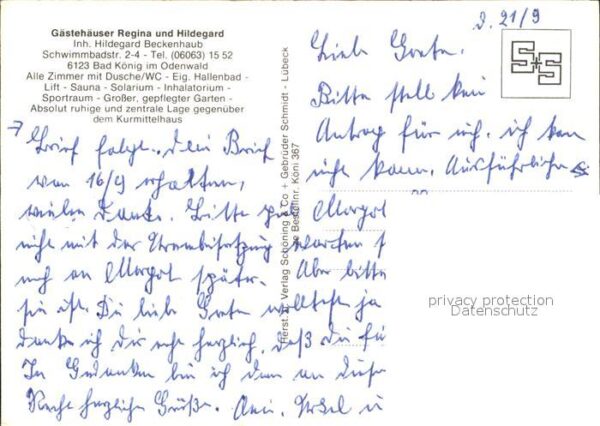 Gästehäuser Regina und Hildegard
Inh. Hildegard Beckenhaub
Schwimmbadstr. 2-4 - Tel. (06063) 15 52
6123 Bad König im Odenwald
Alle Zimmer mit Dusche/WC - Eig. Hallenbad -
Lift - Sauna - Solarium - Inhalatorium -
Sportraum - Großer, gepflegter Garten -
Absolut ruhige und zentrale Lage gegenüber
dem Kurmittelhaus
d. 21/9
S+S
Liebe Greta.
Bitte stell kein
Antrag für mich. ich kann
nicht kommen. Ausführlicher
Brief folgt. dein Brief
von 16/9 erhalten,
vielen Dank. Bitte
nicht mit der warten
mich an Margot später. Aber bitte
sie ist. Du liebe Greta wolltest ja
danke ich dir recht herzlich. daß du fü
In Gedanken bin ich dann an
Recht herzliche Grüße.
Margot
Herst. u. Verlag Schöning & Co + Gebrüder Schmidt - Lübeck
Bestellnr. Köni 367
privacy protection
Datenschutz